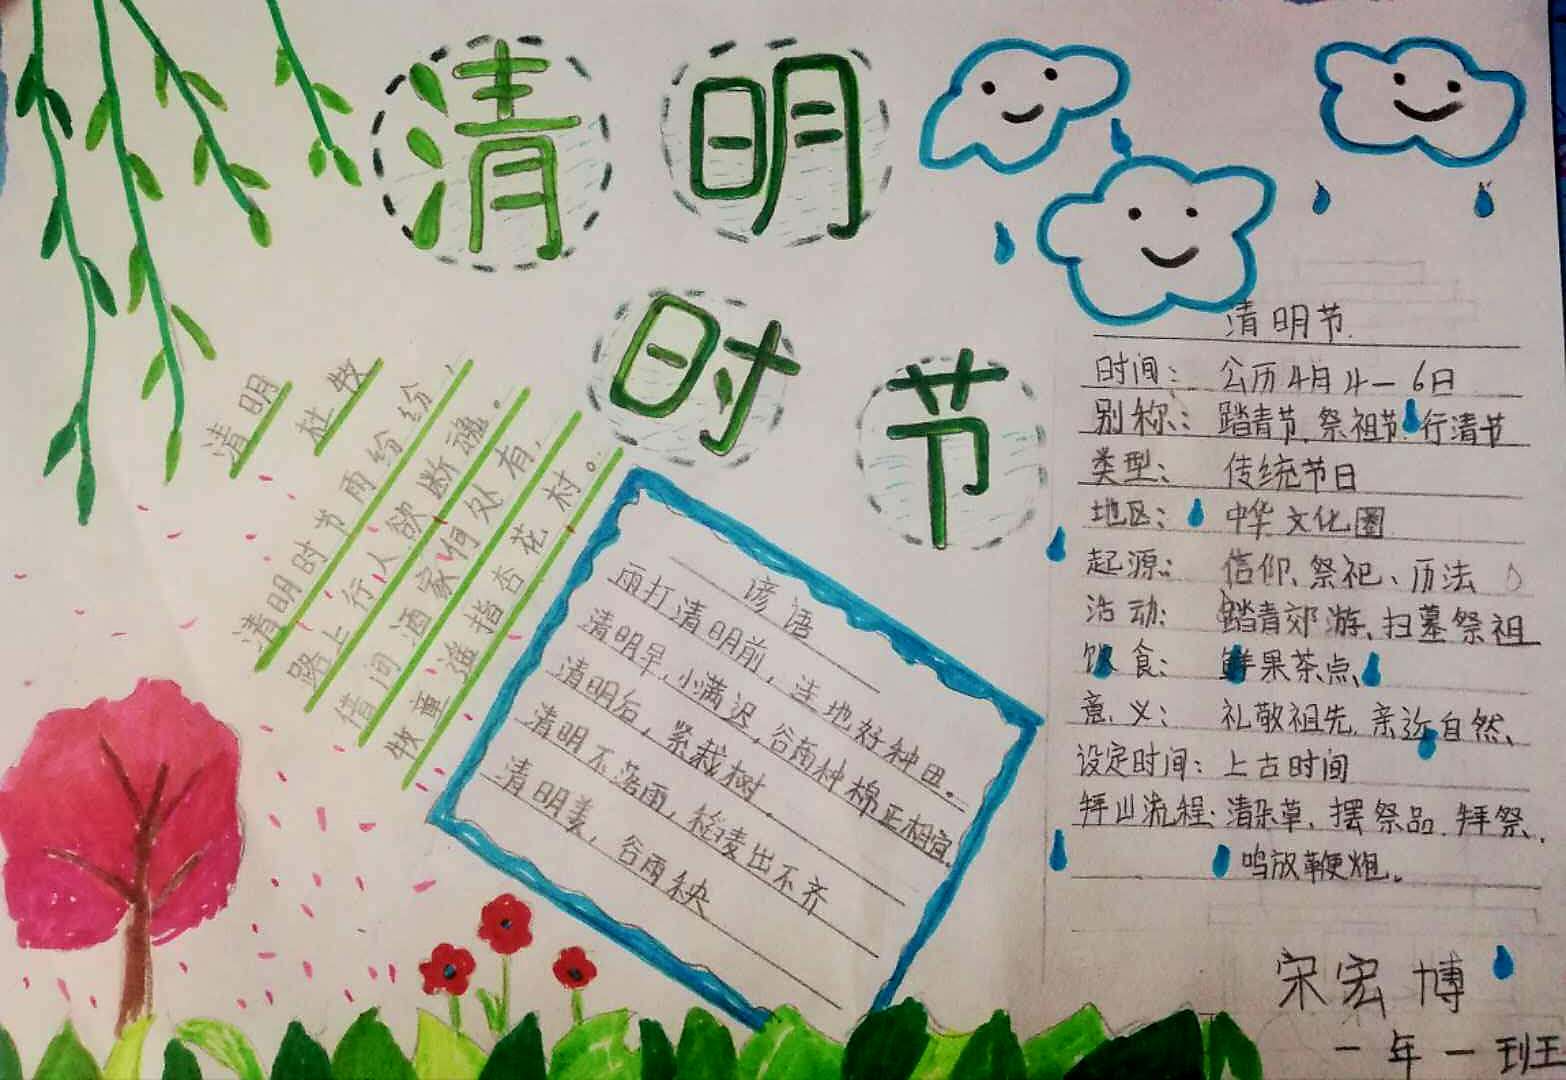 清明
时节
清明
杜牧
清明时节雨纷纷，
路上行人欲断魂。
借问酒家何处有，
牧童遥指杏花村。
谚语
雨打清明前，洼地好种田。
清明早，小满迟，谷雨种棉正相宜。
清明后，紧栽树。
清明不落雨，稔凌出不齐
清明姜，谷雨秧
清明节
时间：公历4月4－6日
别称：踏青节、祭祖节、行清节
类型：传统节日
地区：中华文化圈
起源：信仰、祭祀、历法
活动：踏青郊游、扫墓祭祖
饮食：鲜果茶点、
意义：礼敬祖先、亲近自然、
设定时间：上古时间
拜山流程：清杂草、摆祭品、拜祭、
鸣放鞭炮。
宋宏博
一年一班